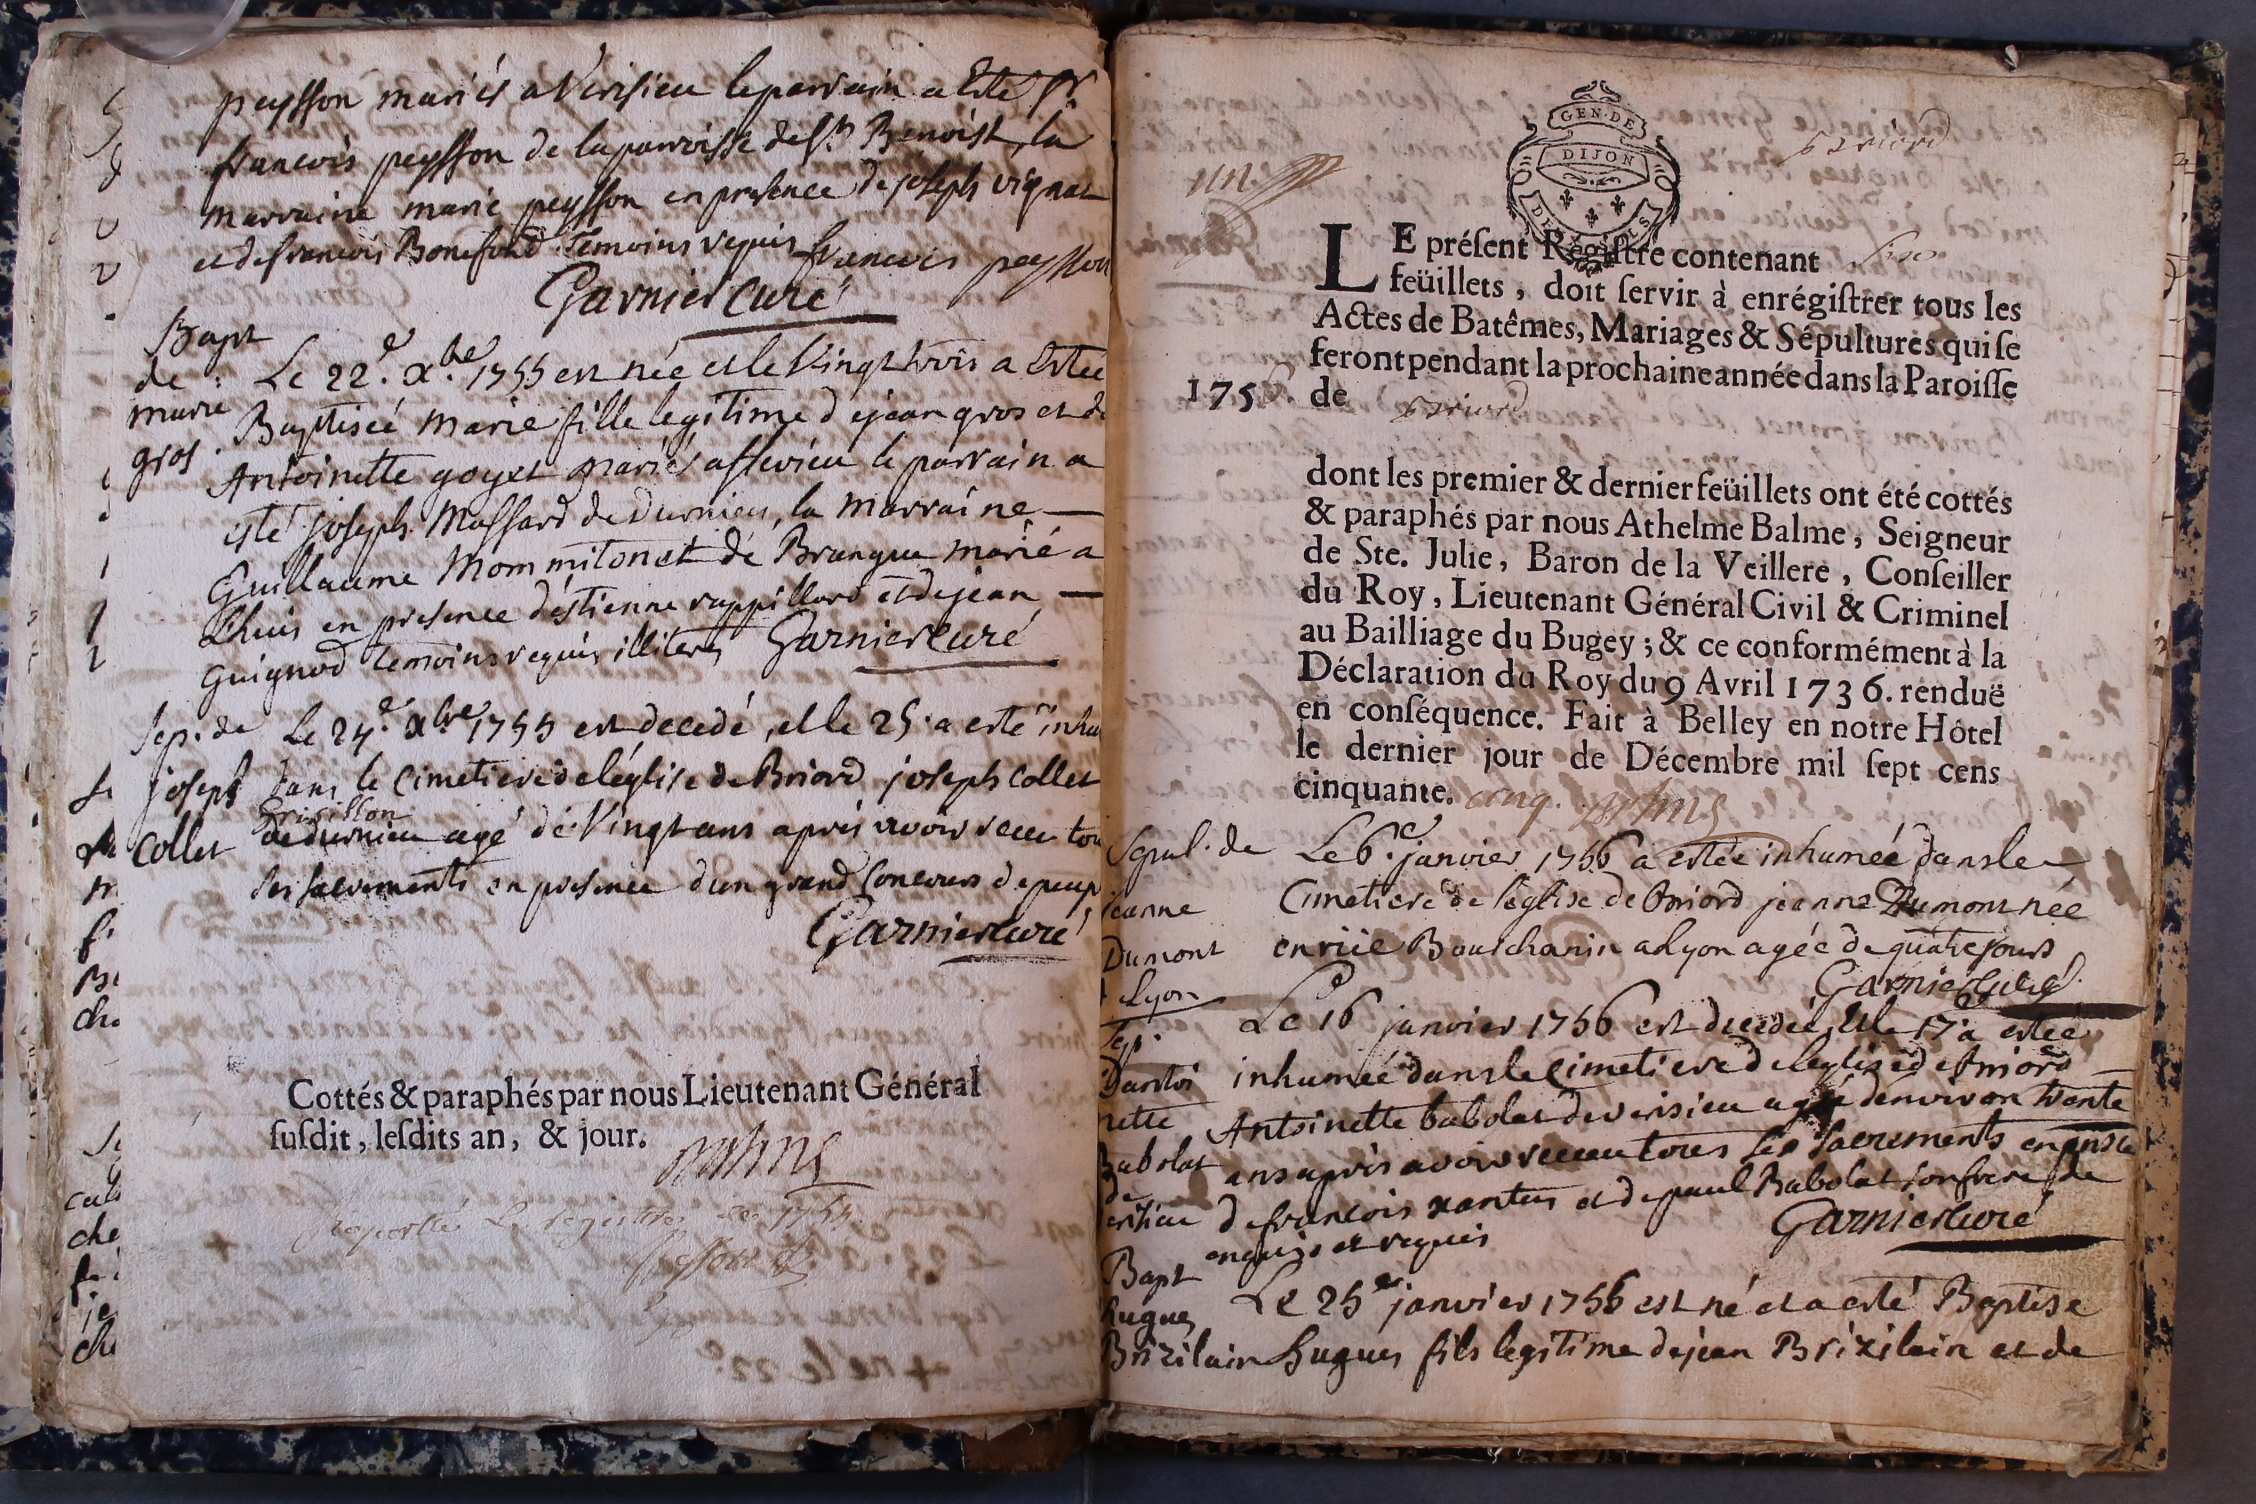 peysson mariés a Verisieu le parrain a Esté Sr.
francois peysson de la parroisse de St Benoist, la
marraine marie peysson en presence de joseph vignat
et de francois Bonefond temoins requis francois peysson
Garnier Curé
Bapt
de
marie
gros.
Le 22.e Xbre 1755 est née et le vingt trois a Estée
Baptisée marie fille legitime de jean gros et de
Antoinette goyet mariés a flevieu le parrain a
esté joseph Massard de Durnieu, la marraine
Guillaume Mommitonet de Brangue marié a
Lhuis en presence d'estienne rappillard et de jean
Guignod temoins requis illiteres Garnier Curé
Sep. de
joseph
Collet
Le 24.e Xbre 1755 est decedé, et le 25. a esté inhu
dans le Cimetiere de léglise de Briord joseph Collet
de durnieu agé de Vingt ans aprés avoir receu tou
les sacrements en presence d'un grand Concours de peup
Garnier Curé
Cottés & paraphés par nous Lieutenant Général
susdit, lesdits an, & jour.
Balme
GEN. DE
DIJON
un
Briord
LE présent Registre contenant Six
feüillets, doit servir à enrégistrer tous les
Actes de Batêmes, Mariages & Sépultures qui se
feront pendant la prochaine année dans la Paroisse
1756. de Briord
dont les premier & dernier feüillets ont été cottés
& paraphés par nous Athelme Balme, Seigneur
de Ste. Julie, Baron de la Veillere, Conseiller
du Roy, Lieutenant Général Civil & Criminel
au Bailliage du Bugey; & ce conformément à la
Déclaration du Roy du 9 Avril 1736. renduë
en conséquence. Fait à Belley en notre Hôtel
le dernier jour de Décembre mil sept cens
cinquante. cinq. Balme
Sepul. de
jeanne
Dumont
Lyon
Le 6.e janvier 1756 a estée inhumée dans le
Cimetiere de l'église de Briord jeanne Dumont née
en rüe Bourchanin a Lyon agée de quatre jours
Garnier Curé
Sep.
D'antoi
nette
Babolat
de
erisieu
Le 16 janvier 1756 est decedée, et le 17.e a estée
inhumée dans le Cimetiere de leglise de Briord
Antoinette babolat de verisieu agée d'environ trente
ans aprés avoir receu tous les sacrements en pnsce
de francois nantus et de paul Babolat son frere de
enquis et requis
Garnier Curé
Bapt
hugues
Brizilain
Le 25.e janvier 1756 est né et a esté Baptisé
hugues fils legitime de jean Brizilain et de